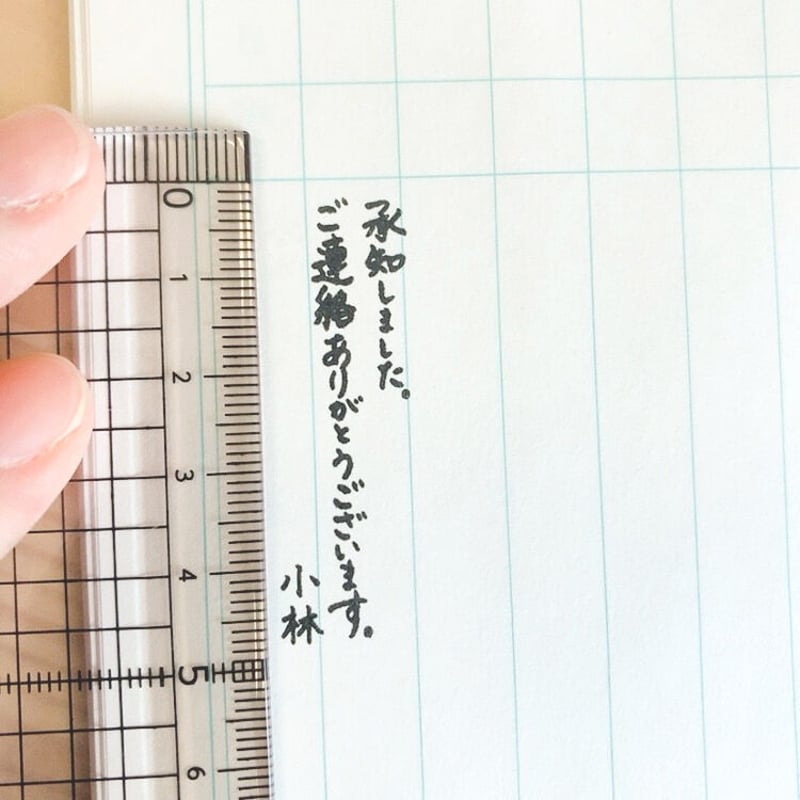 承知しました。
ご連絡ありがとうございます。
小林
0
1
2
3
4
5
6